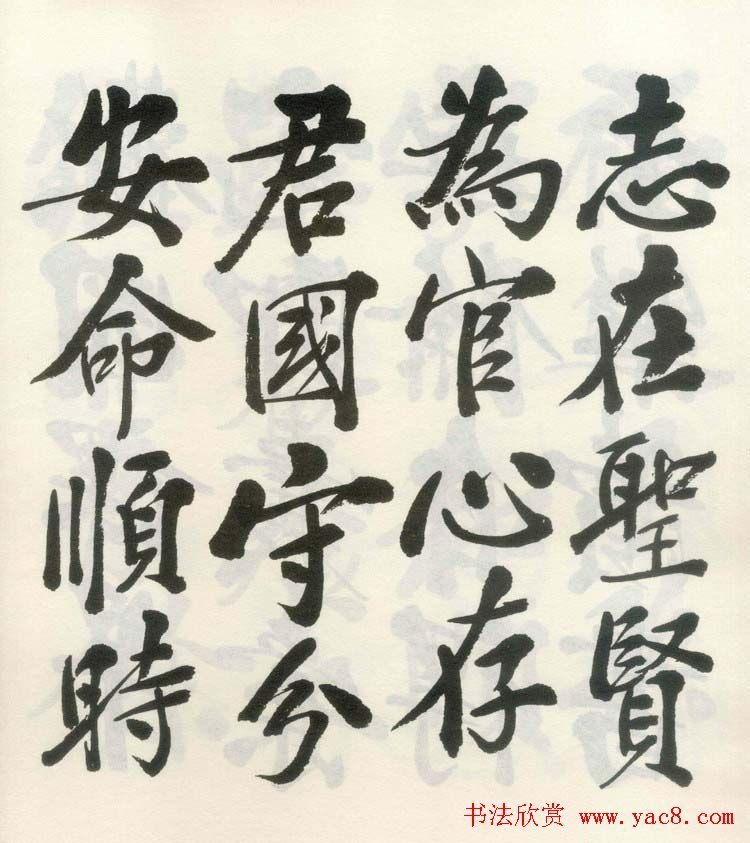 志在聖賢
為官心存
君國守分
安命順時
书法欣赏 www.yac8.com